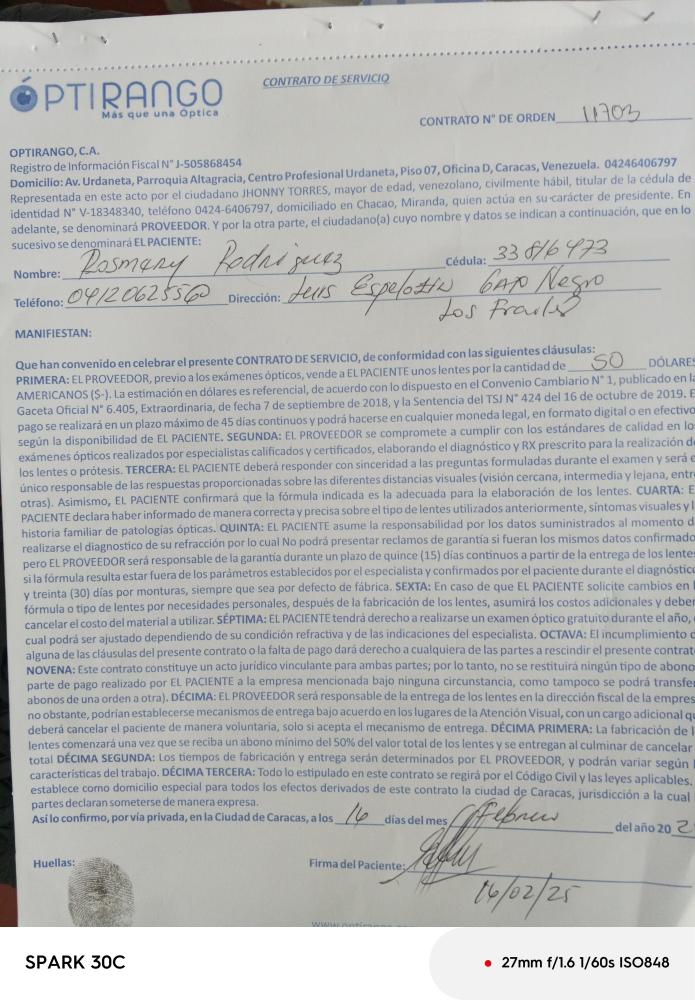 ÓPTIRANGO
Más que una Óptica
CONTRATO DE SERVICIO
CONTRATO N° DE ORDEN 11703
OPTIRANGO, C.A.
Registro de Información Fiscal N° J-505868454
Domicilio: Av. Urdaneta, Parroquia Altagracia, Centro Profesional Urdaneta, Piso 07, Oficina D, Caracas, Venezuela. 04246406797
Representada en este acto por el ciudadano JHONNY TORRES, mayor de edad, venezolano, civilmente hábil, titular de la cédula de
identidad N° V-18348340, teléfono 0424-6406797, domiciliado en Chacao, Miranda, quien actúa en su carácter de presidente. En
adelante, se denominará PROVEEDOR. Y por la otra parte, el ciudadano(a) cuyo nombre y datos se indican a continuación, que en lo
sucesivo se denominará EL PACIENTE:
Nombre: Rosmary Rodriguez Cédula: 33816473
Teléfono: 04120625560 Dirección: Luis Espelozin Gato Negro
Los Frailes
MANIFIESTAN:
Que han convenido en celebrar el presente CONTRATO DE SERVICIO, de conformidad con las siguientes cláusulas:
PRIMERA: EL PROVEEDOR, previo a los exámenes ópticos, vende a EL PACIENTE unos lentes por la cantidad de 50 DÓLARES
AMERICANOS ($-). La estimación en dólares es referencial, de acuerdo con lo dispuesto en el Convenio Cambiario N° 1, publicado en la
Gaceta Oficial N° 6.405, Extraordinaria, de fecha 7 de septiembre de 2018, y la Sentencia del TSJ N° 424 del 16 de octubre de 2019. E
pago se realizará en un plazo máximo de 45 días continuos y podrá hacerse en cualquier moneda legal, en formato digital o en efectivo
según la disponibilidad de EL PACIENTE. SEGUNDA: EL PROVEEDOR se compromete a cumplir con los estándares de calidad en los
exámenes ópticos realizados por especialistas calificados y certificados, elaborando el diagnóstico y RX prescrito para la realización de
los lentes o prótesis. TERCERA: EL PACIENTE deberá responder con sinceridad a las preguntas formuladas durante el examen y será e
único responsable de las respuestas proporcionadas sobre las diferentes distancias visuales (visión cercana, intermedia y lejana, entre
otras). Asimismo, EL PACIENTE confirmará que la fórmula indicada es la adecuada para la elaboración de los lentes. CUARTA: E
PACIENTE declara haber informado de manera correcta y precisa sobre el tipo de lentes utilizados anteriormente, síntomas visuales y l
historia familiar de patologías ópticas. QUINTA: EL PACIENTE asume la responsabilidad por los datos suministrados al momento d
realizarse el diagnostico de su refracción por lo cual No podrá presentar reclamos de garantía si fueran los mismos datos confirmado
pero EL PROVEEDOR será responsable de la garantía durante un plazo de quince (15) días continuos a partir de la entrega de los lentes
si la fórmula resulta estar fuera de los parámetros establecidos por el especialista y confirmados por el paciente durante el diagnóstico
y treinta (30) días por monturas, siempre que sea por defecto de fábrica. SEXTA: En caso de que EL PACIENTE solicite cambios en l
fórmula o tipo de lentes por necesidades personales, después de la fabricación de los lentes, asumirá los costos adicionales y deber
cancelar el costo del material a utilizar. SÉPTIMA: EL PACIENTE tendrá derecho a realizarse un examen óptico gratuito durante el año,
cual podrá ser ajustado dependiendo de su condición refractiva y de las indicaciones del especialista. OCTAVA: El incumplimiento d
alguna de las cláusulas del presente contrato o la falta de pago dará derecho a cualquiera de las partes a rescindir el presente contrat
NOVENA: Este contrato constituye un acto jurídico vinculante para ambas partes; por lo tanto, no se restituirá ningún tipo de abono
parte de pago realizado por EL PACIENTE a la empresa mencionada bajo ninguna circunstancia, como tampoco se podrá transfer
abonos de una orden a otra). DÉCIMA: EL PROVEEDOR será responsable de la entrega de los lentes en la dirección fiscal de la empres
no obstante, podrían establecerse mecanismos de entrega bajo acuerdo en los lugares de la Atención Visual, con un cargo adicional qu
deberá cancelar el paciente de manera voluntaria, solo si acepta el mecanismo de entrega. DÉCIMA PRIMERA: La fabricación de l
lentes comenzará una vez que se reciba un abono mínimo del 50% del valor total de los lentes y se entregan al culminar de cancelar
total DÉCIMA SEGUNDA: Los tiempos de fabricación y entrega serán determinados por EL PROVEEDOR, y podrán variar según l
características del trabajo. DÉCIMA TERCERA: Todo lo estipulado en este contrato se regirá por el Código Civil y las leyes aplicables.
establece como domicilio especial para todos los efectos derivados de este contrato la ciudad de Caracas, jurisdicción a la cual
partes declaran someterse de manera expresa.
Así lo confirmo, por vía privada, en la Ciudad de Caracas, a los 16 días del mes Febrero del año 20 2
Huellas:
Firma del Paciente:
16/02/25
SPARK 30C
27mm f/1.6 1/60s ISO848